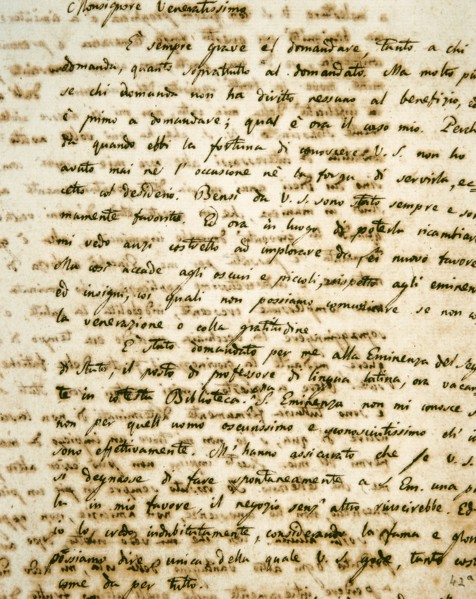 Monsignore Veneratissimo
È sempre grave il domandare tanto a chi
domanda, quanto sopratutto al domandato. Ma molto più
se chi domanda non ha diritto nessuno al benefizio, ed
è primo a domandare; qual è ora il caso mio. Perchè
da quando ebbi la fortuna di conoscere V. S. non ho
avuto mai nè l'occasione nè la forza di servirla, ec-
cetto col desiderio. Bensì da V. S. sono stato sempre e
mamente favorito. Ed ora in luogo di poterla ricambiare
mi vedo anzi costretto ad implorare da Lei nuovo favore
Ma così accade agli oscuri e piccoli, rispetto agli eminen
ed insigni, coi quali non possiamo comunicare se non co
la venerazione o colla gratitudine.
È stato domandato per me alla Eminenza del Seg
di Stato, il posto di professore di lingua latina, ora vacan
te in cotesta Biblioteca. S. Eminenza non mi conosce
non per quell'uomo oscurissimo e sconosciutissimo ch'i
sono effettivamente. M'hanno assicurato che se V. S.
si degnasse di fare spontaneamente a S. Em. una pa
la in mio favore il negozio senz'altro riuscirebbe. Ed
io lo credo indubitatamente, considerando la stima e
possiamo dire unica, della quale V. S. gode, tanto cos
come da per tutto.